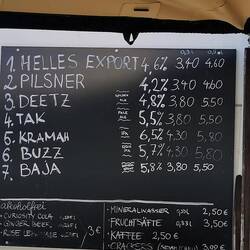 0,3L 0,5L
1. HELLES EXPORT 4,6% 3.40 4.60
2 PILSNER 4,2% 3.40 4.60
3 DEETZ 4,8% 3.80 5.50
4. TAK 5,5% 3.80 5.50
5. KRAMAH 6,5% 4.30 5.80
6. BUZZ 5,7% 4.30 5.80
7. BAJA 5,8% 3.80 5.50
alkoholfrei
- CURIOSITY COLA
- GINGER BEER
- ROSE LEMONADE
3€
- MINERALWASSER 2,50€
- FRUCHTSÄFTE 0,33L 3,50€
- KAFFEE 2,50€